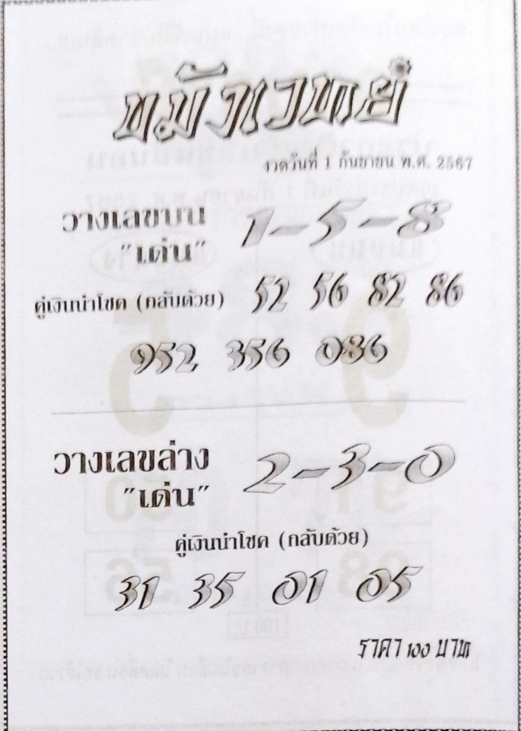 งวดวันที่ 1 กันยายน พ.ศ. 2567
วางเลขบน 1-5-8
"เด่น"
คู่เงินนำโชค (กลับด้วย) 52 56 82 86
952 356 086
วางเลขล่าง 2-3-0
"เด่น"
คู่เงินนำโชค (กลับด้วย)
31 35 01 05
ราคา 100 บาท